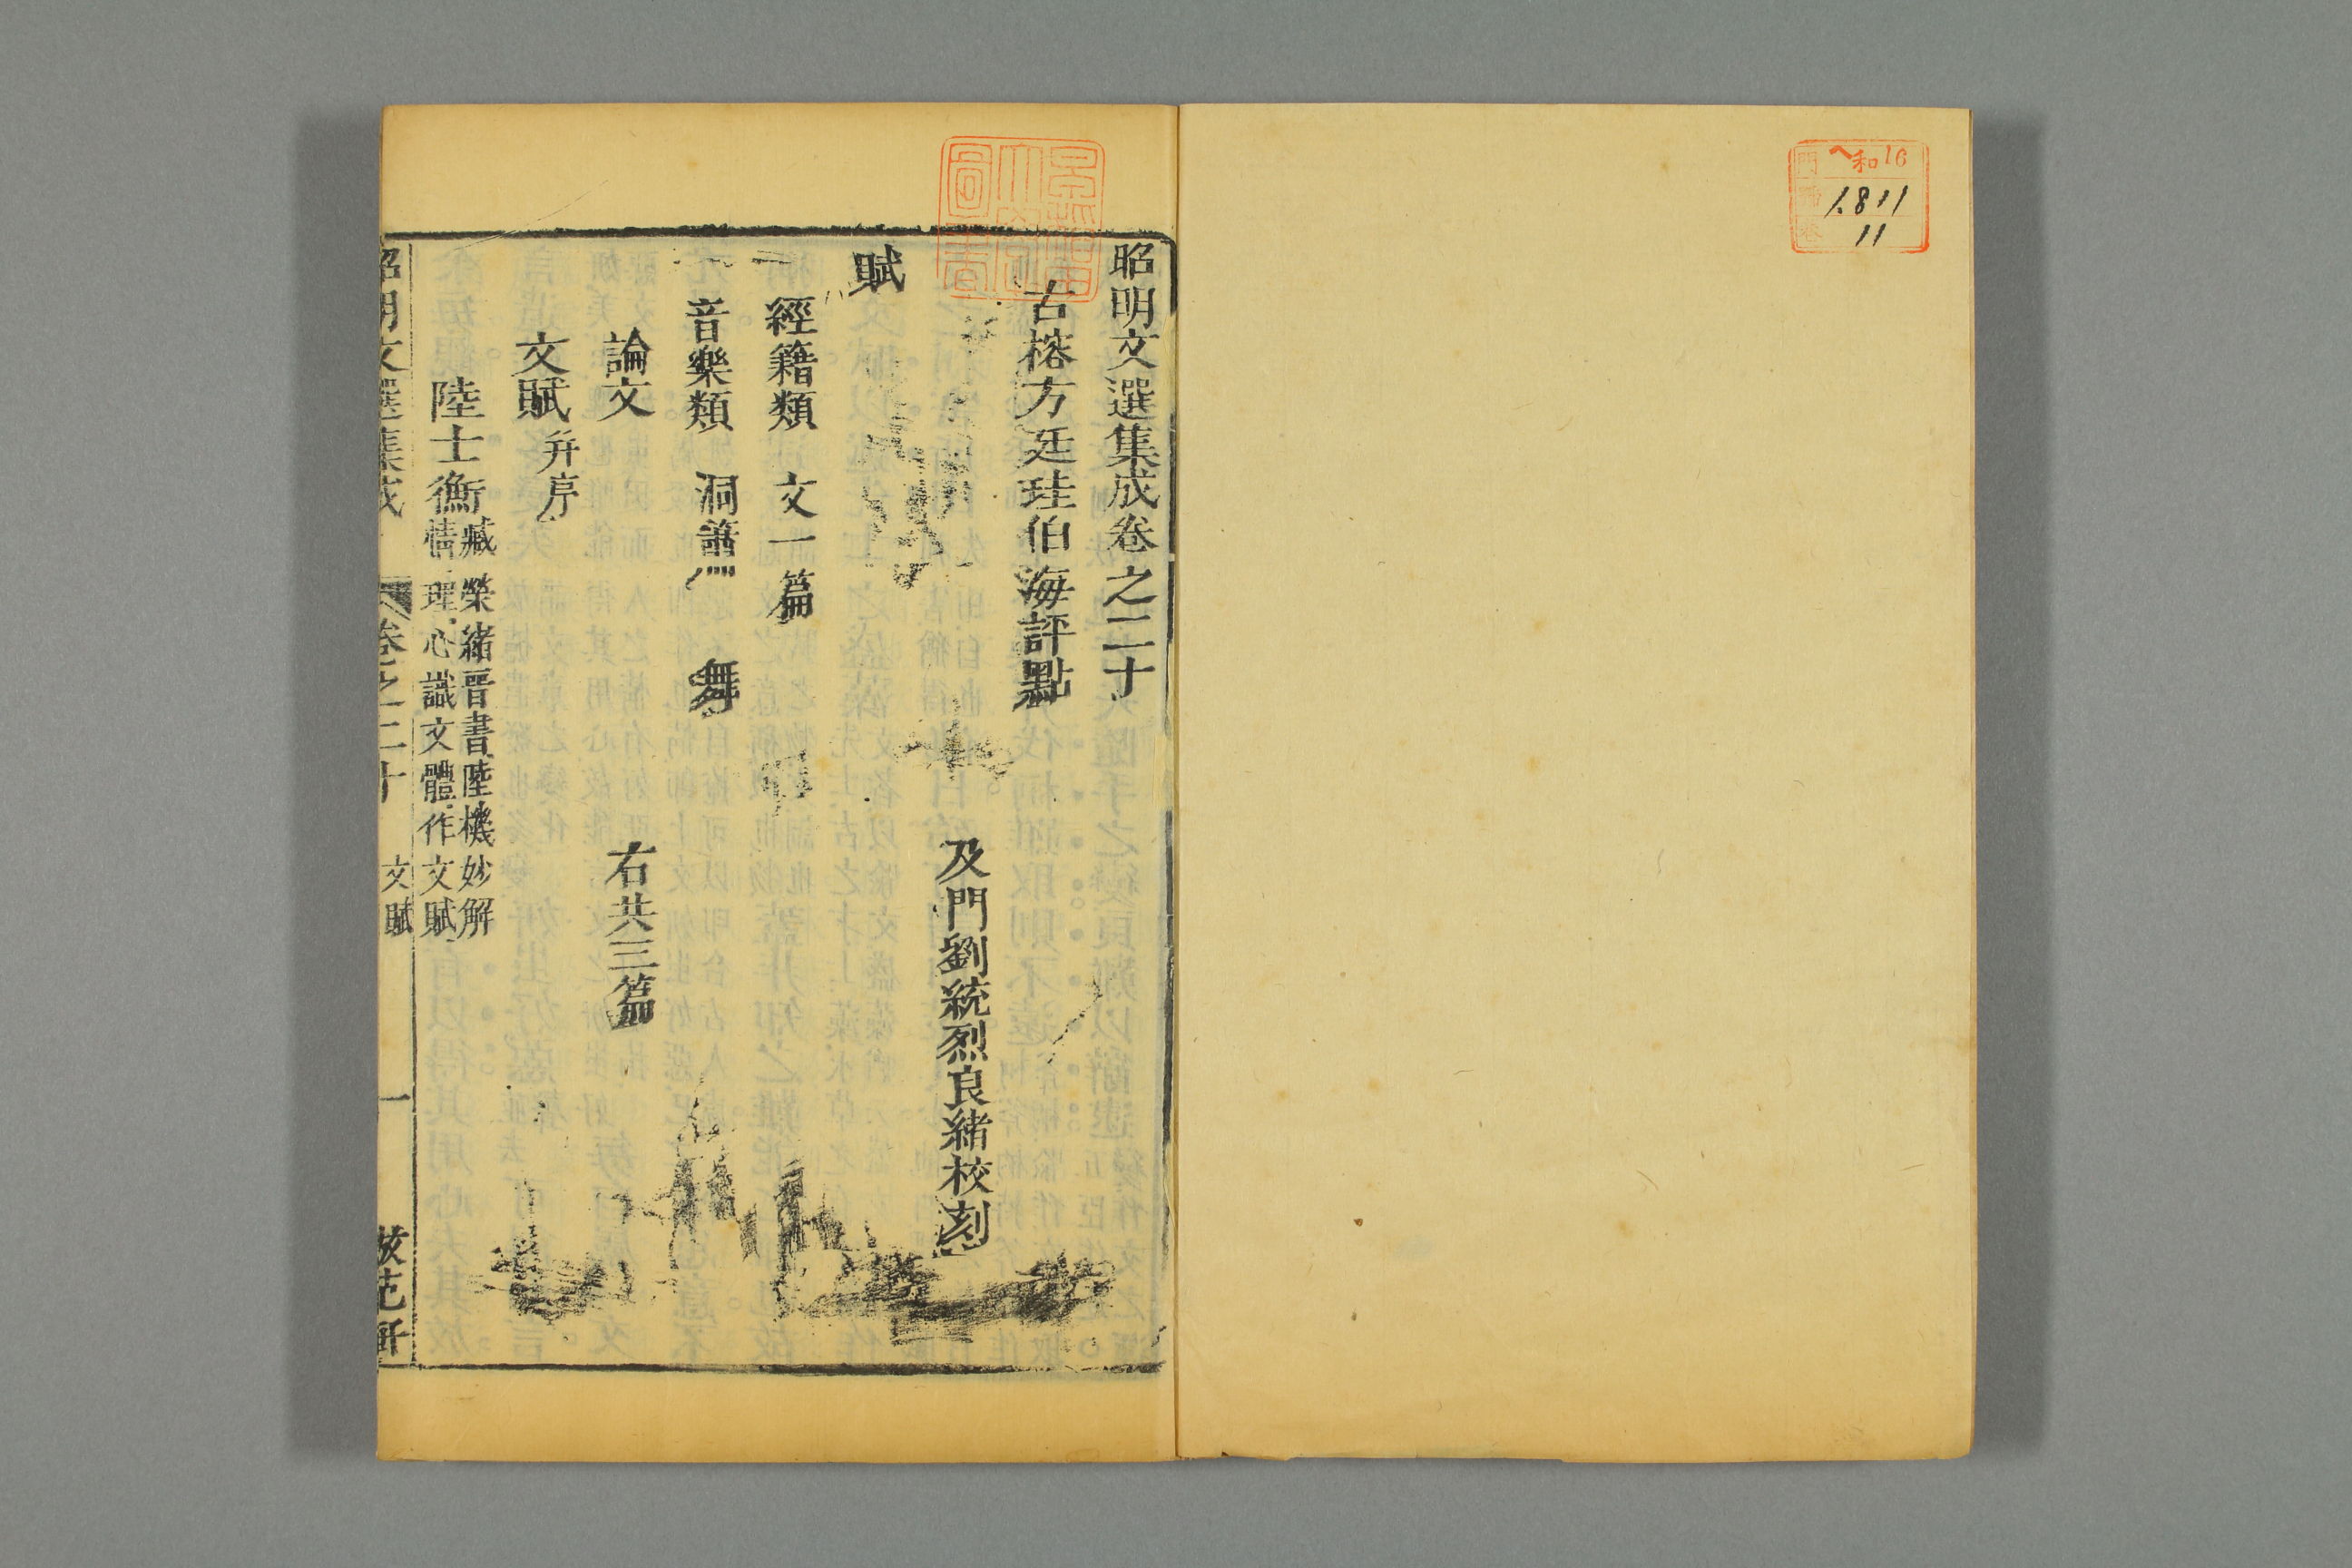 和16
1811
11
昭明文選集成卷之二十
古榕方廷珪伯海評點
及門劉統烈良緒校刻
賦
經籍類 文一篇
音樂類 洞簫 舞
論文 右共三篇
文賦并序
陸士衡臧榮緒晉書陸機妙解
情理心識文體作文賦
昭明文選集成 卷之二十 文賦 一 倣范軒